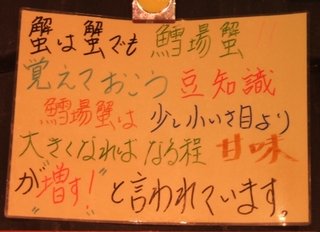 蟹は蟹でも 鱈場蟹!!
覚えておこう 豆知識
鱈場蟹は 少し小いさ目より
大きくなれば なる程 甘味
が"増す!"と言われています。